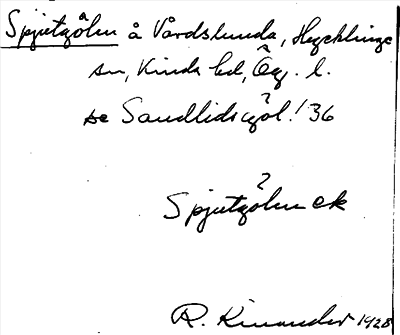 Spjutgöln å Vårdslunda, Hycklinge
sn, Kinda hd, Ög. l.
se Sandlidsgöl! 36
Spjutgöln ek
R. Kinander 1928